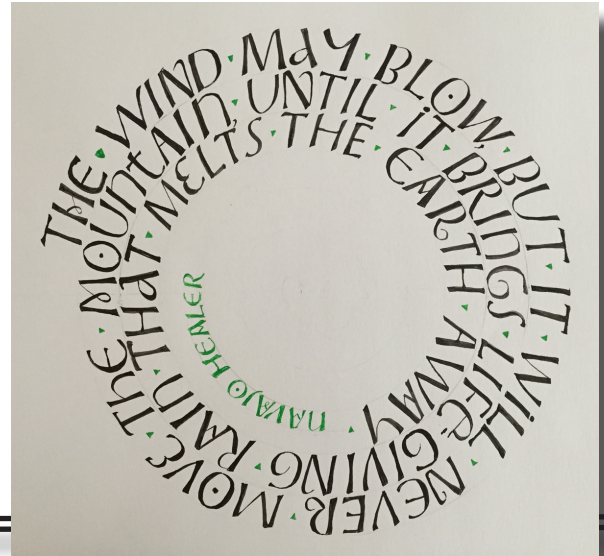 THE · WIND · MAY · BLOW, · BUT · IT · WILL · NEVER · MOVE · THE ·
MOUNTAIN, · UNTIL · IT · BRINGS · LIFE-GIVING · RAIN · THAT ·
MELTS · THE · EARTH · AWAY ·
NAVAJO HEALER